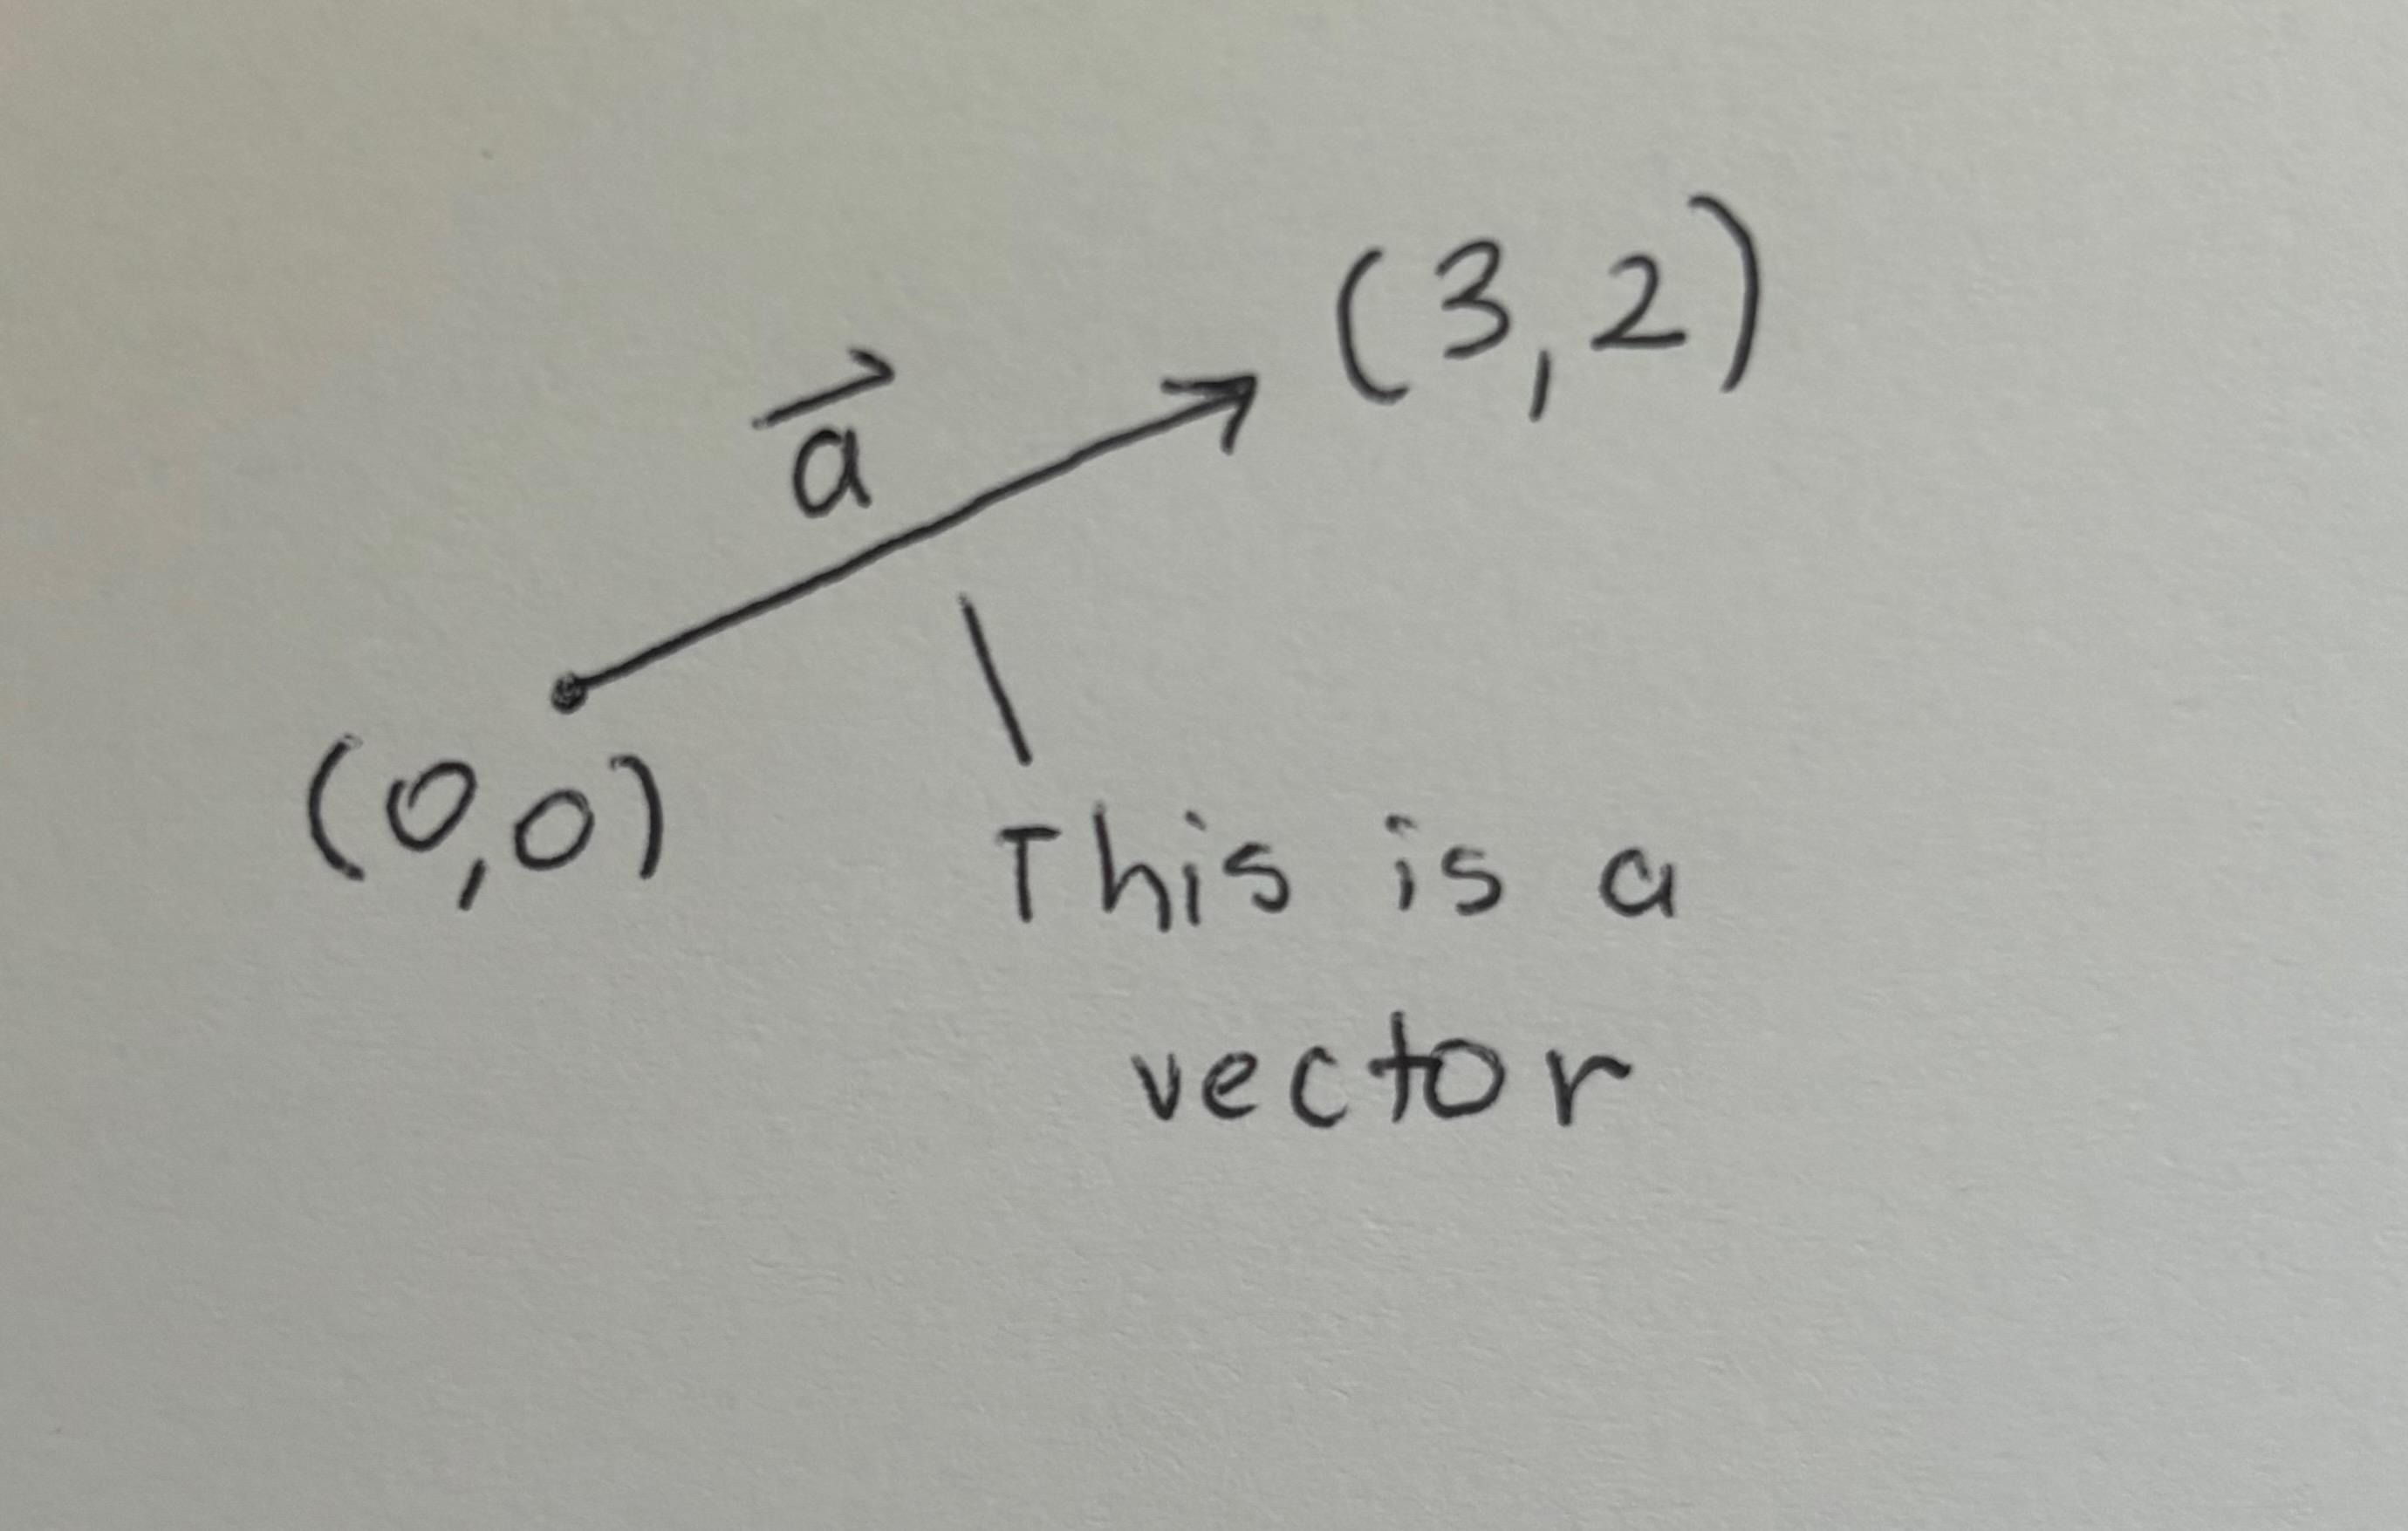 (3,2)
a⃗
(0,0)
This is a
vector